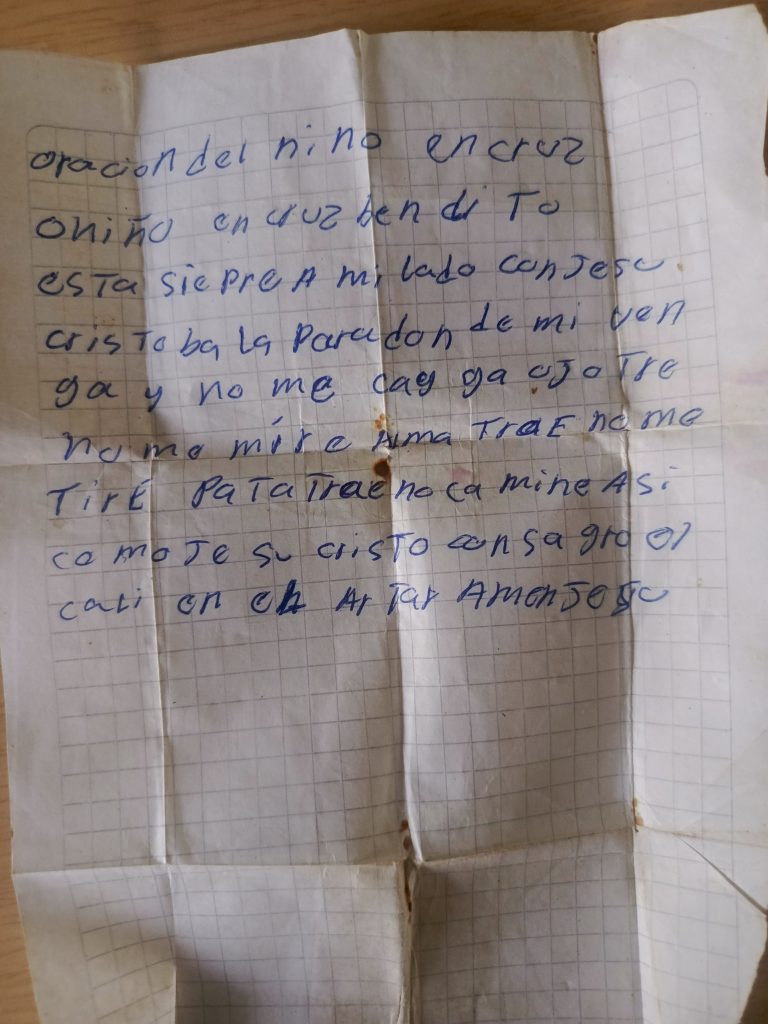 oracion del nino en cruz
oniño en cruz ben di To
esTa siepre A mi lado con Jesu
cris To ba la Para don de mi ven
ga y no me cag ga ojo Tre
no me mire Ama TraE no me
TirE Pa Ta Trae no ca mine Asi
co mo Je su crisTo con sa gro el
cali en el Ar Tar Amen Jesu